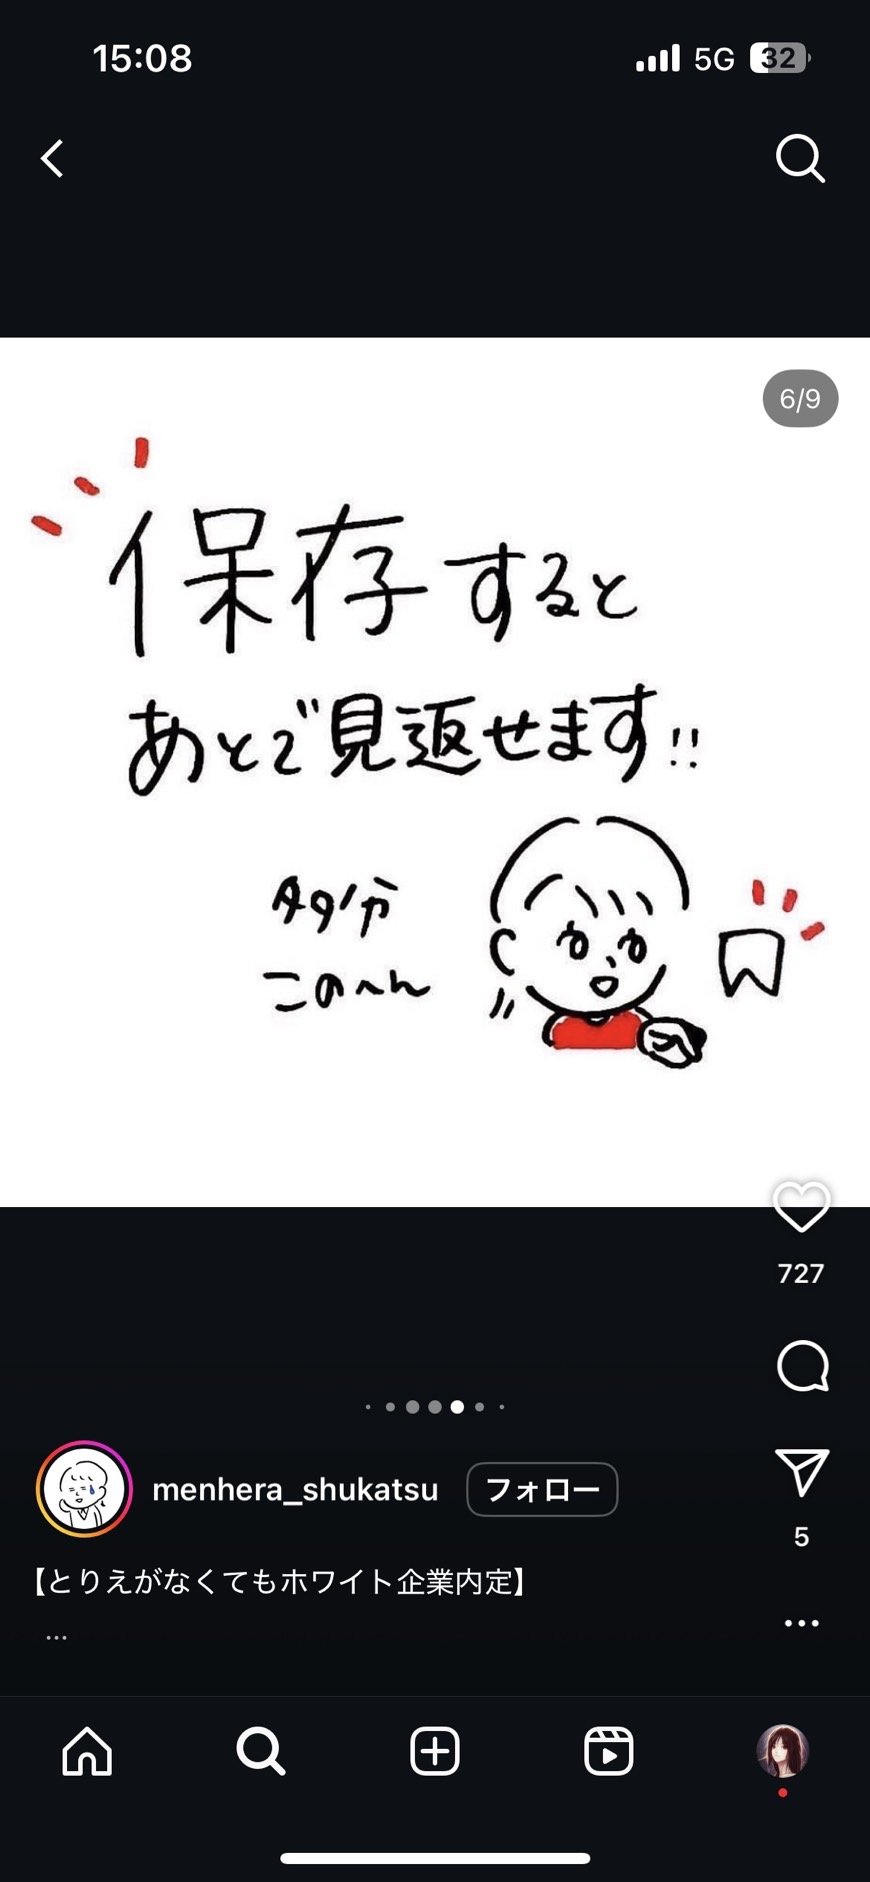 15:08
5G 32
6/9
保存すると
あとで見返せます!!
タタ分
このへん
727
menhera_shukatsu
フォロー
5
【とりえがなくてもホワイト企業内定】
...